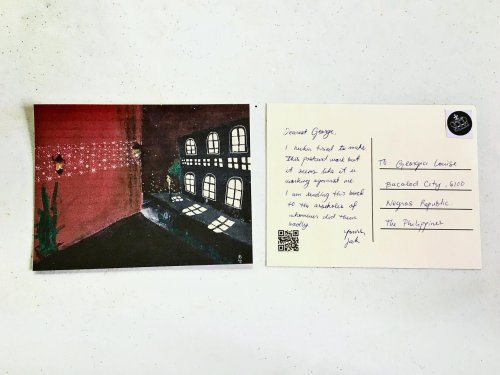 Dearest George,
I have tried to make
this postcard work but
it seems like it is
working against me.
I am sending this back
to the assholes of
whomever did them
badly.
Yours,
Jack
To: Georgia Louise
Bacolod City, 6100
Negros Republic
The Philippines